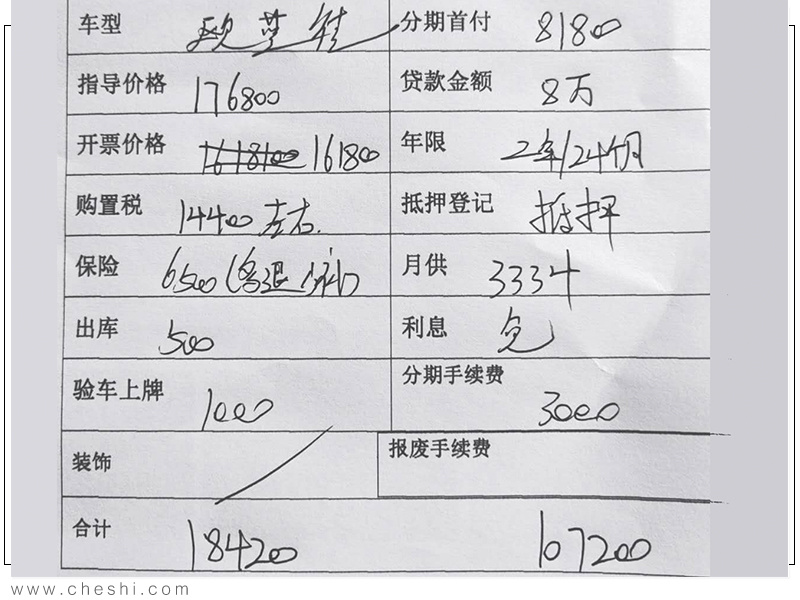 车型 欧蓝德 分期首付 81800
指导价格 176800 贷款金额 8万
开票价格 1618100 161800 年限 2年/24个月
购置税 14400左右. 抵押登记 抵押
保险 6500 月供 3334
出库 500 利息 免
验车上牌 1000 分期手续费 3000
装饰 报废手续费
合计 184200 107200
www.cheshi.com